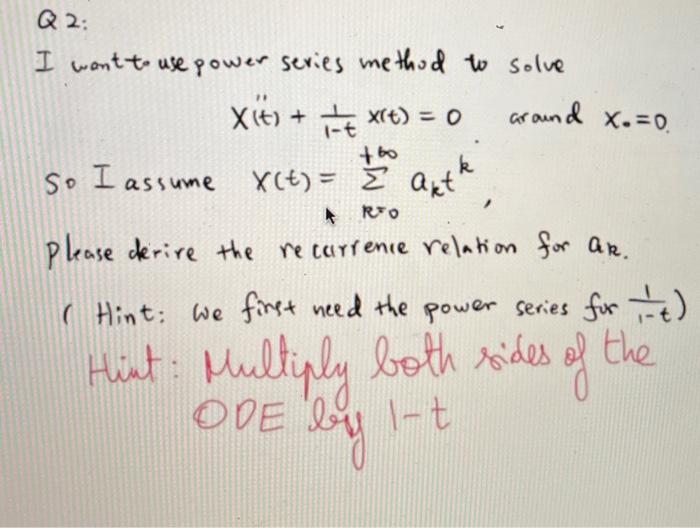 Q 2:
I want to use power series method to solve
Ẍ(t) + 1/(1-t) x(t) = 0 around x₀=0.
So I assume X(t) = Σ_{k=0}^{+∞} a_k t^k,
please derive the recurrence relation for a_k.
( Hint: we first need the power series for 1/(1-t) )
Hint: Multiply both sides of the
ODE by 1-t